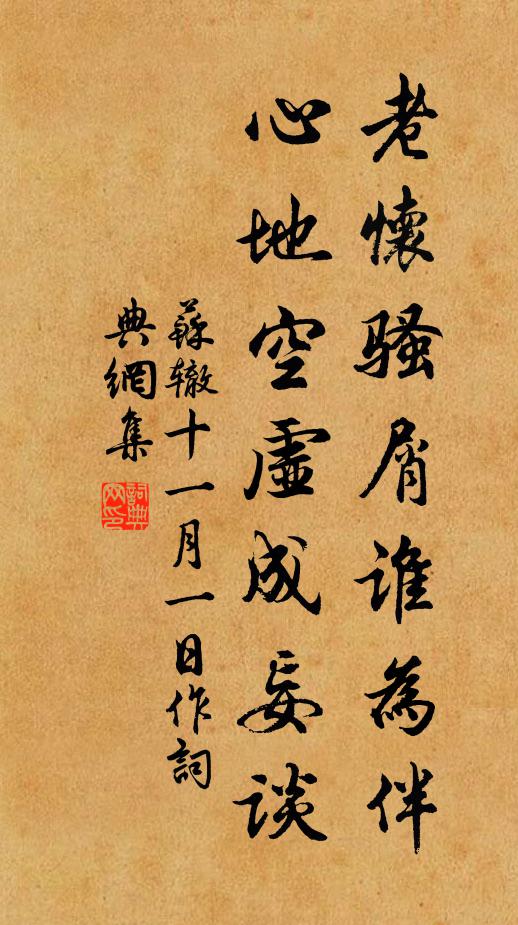 老懷騷屑誰為伴
心地空虛成妄談
蘇轍十一月一日作詞
典網集
詞典
网印